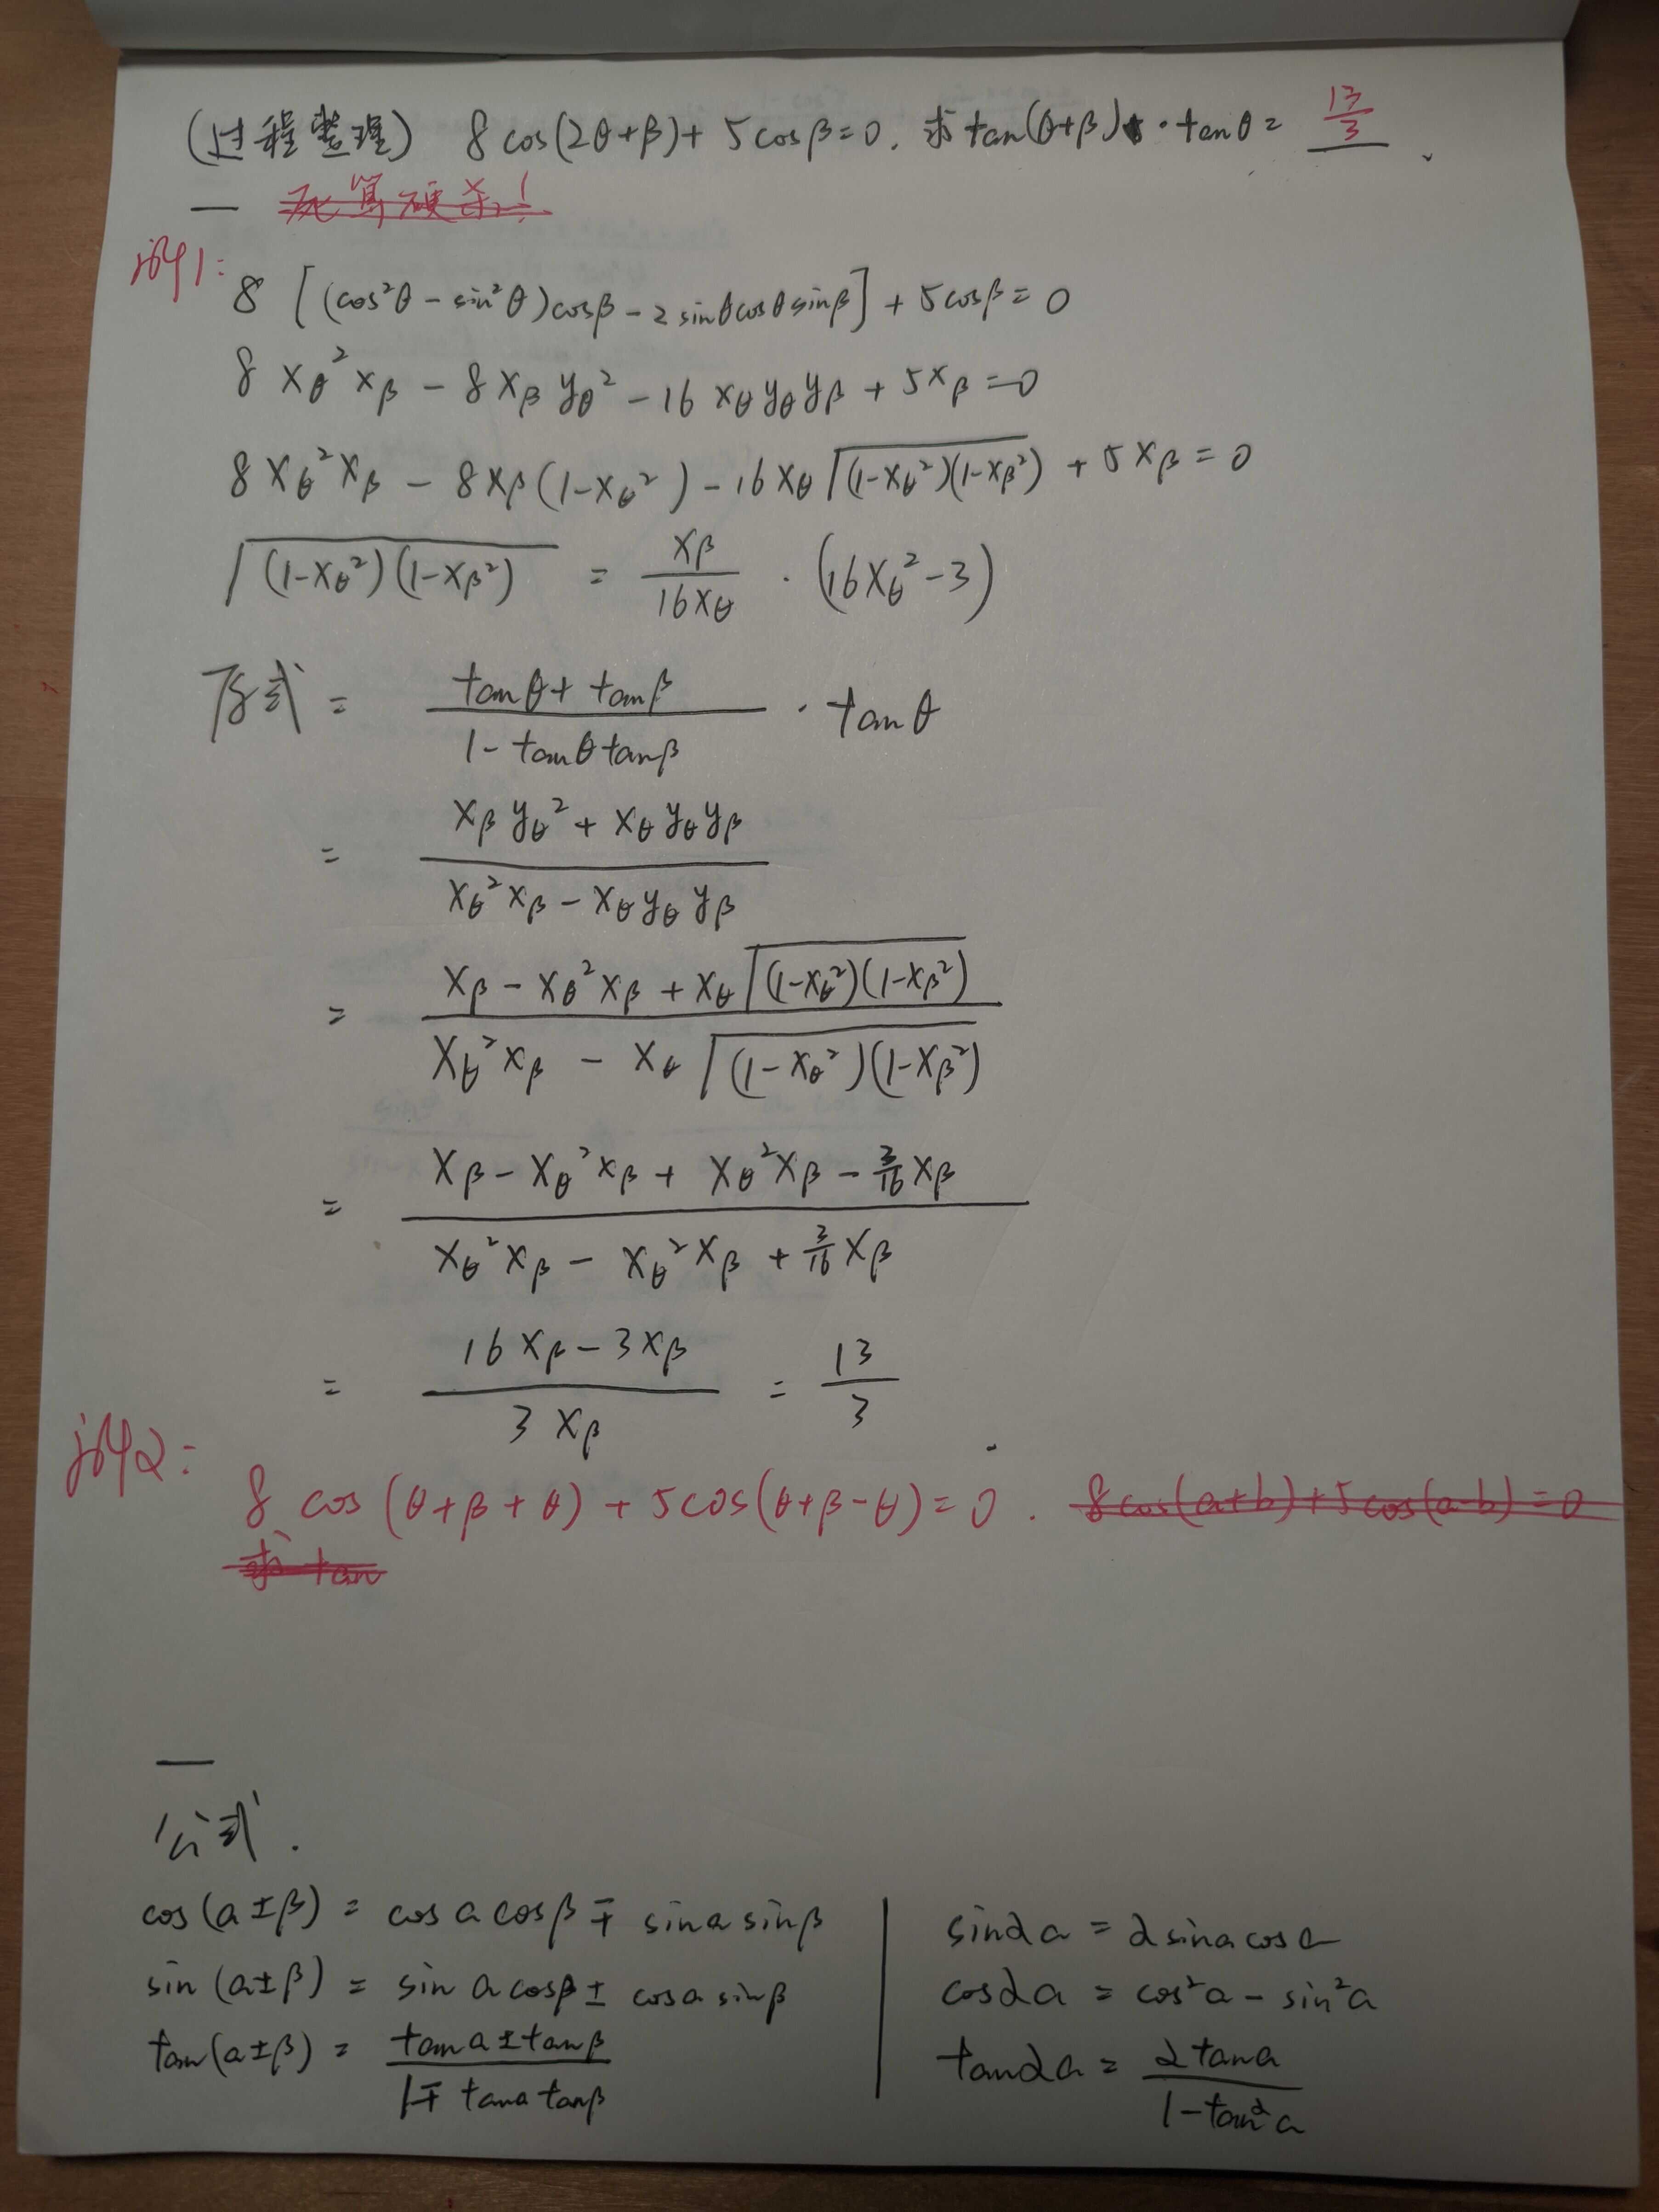 (过程整理) 8cos(2θ+β)+5cosβ=0. 求tan(θ+β)·tanθ= 13/3.
死算硬杀!
评1:
8[(cos²θ-sin²θ)cosβ-2sinθcosθsinβ]+5cosβ=0
8x_θ²x_β-8x_βy_θ²-16x_θy_θy_β+5x_β=0
8x_θ²x_β-8x_β(1-x_θ²)-16x_θ√((1-x_θ²)(1-x_β²))+5x_β=0
√((1-x_θ²)(1-x_β²))=x_β/(16x_θ)·(16x_θ²-3)
原式=(tanθ+tanβ)/(1-tanθtanβ)·tanθ
=(x_βy_θ²+x_θy_θy_β)/(x_θ²x_β-x_θy_θy_β)
=(x_β-x_θ²x_β+x_θ√((1-x_θ²)(1-x_β²)))/(x_θ²x_β-x_θ√((1-x_θ²)(1-x_β²)))
=(x_β-x_θ²x_β+x_θ²x_β-3/16x_β)/(x_θ²x_β-x_θ²x_β+3/16x_β)
=(16x_β-3x_β)/(3x_β)=13/3
评2:
8cos(θ+β+θ)+5cos(θ+β-θ)=0. 8cos(a+b)+5cos(a-b)=0
求tan
公式.
cos(a±β)=cosacosβ∓sinasinβ
sin(a±β)=sinacosβ±cosasinβ
tan(a±β)=(tana±tanβ)/(1∓tanatanβ)
sin2a=2sinacosa
cos2a=cos²a-sin²a
tan2a=2tana/(1-tan²a)